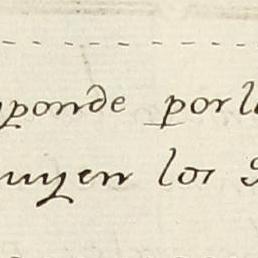 ponde por l
uyen los